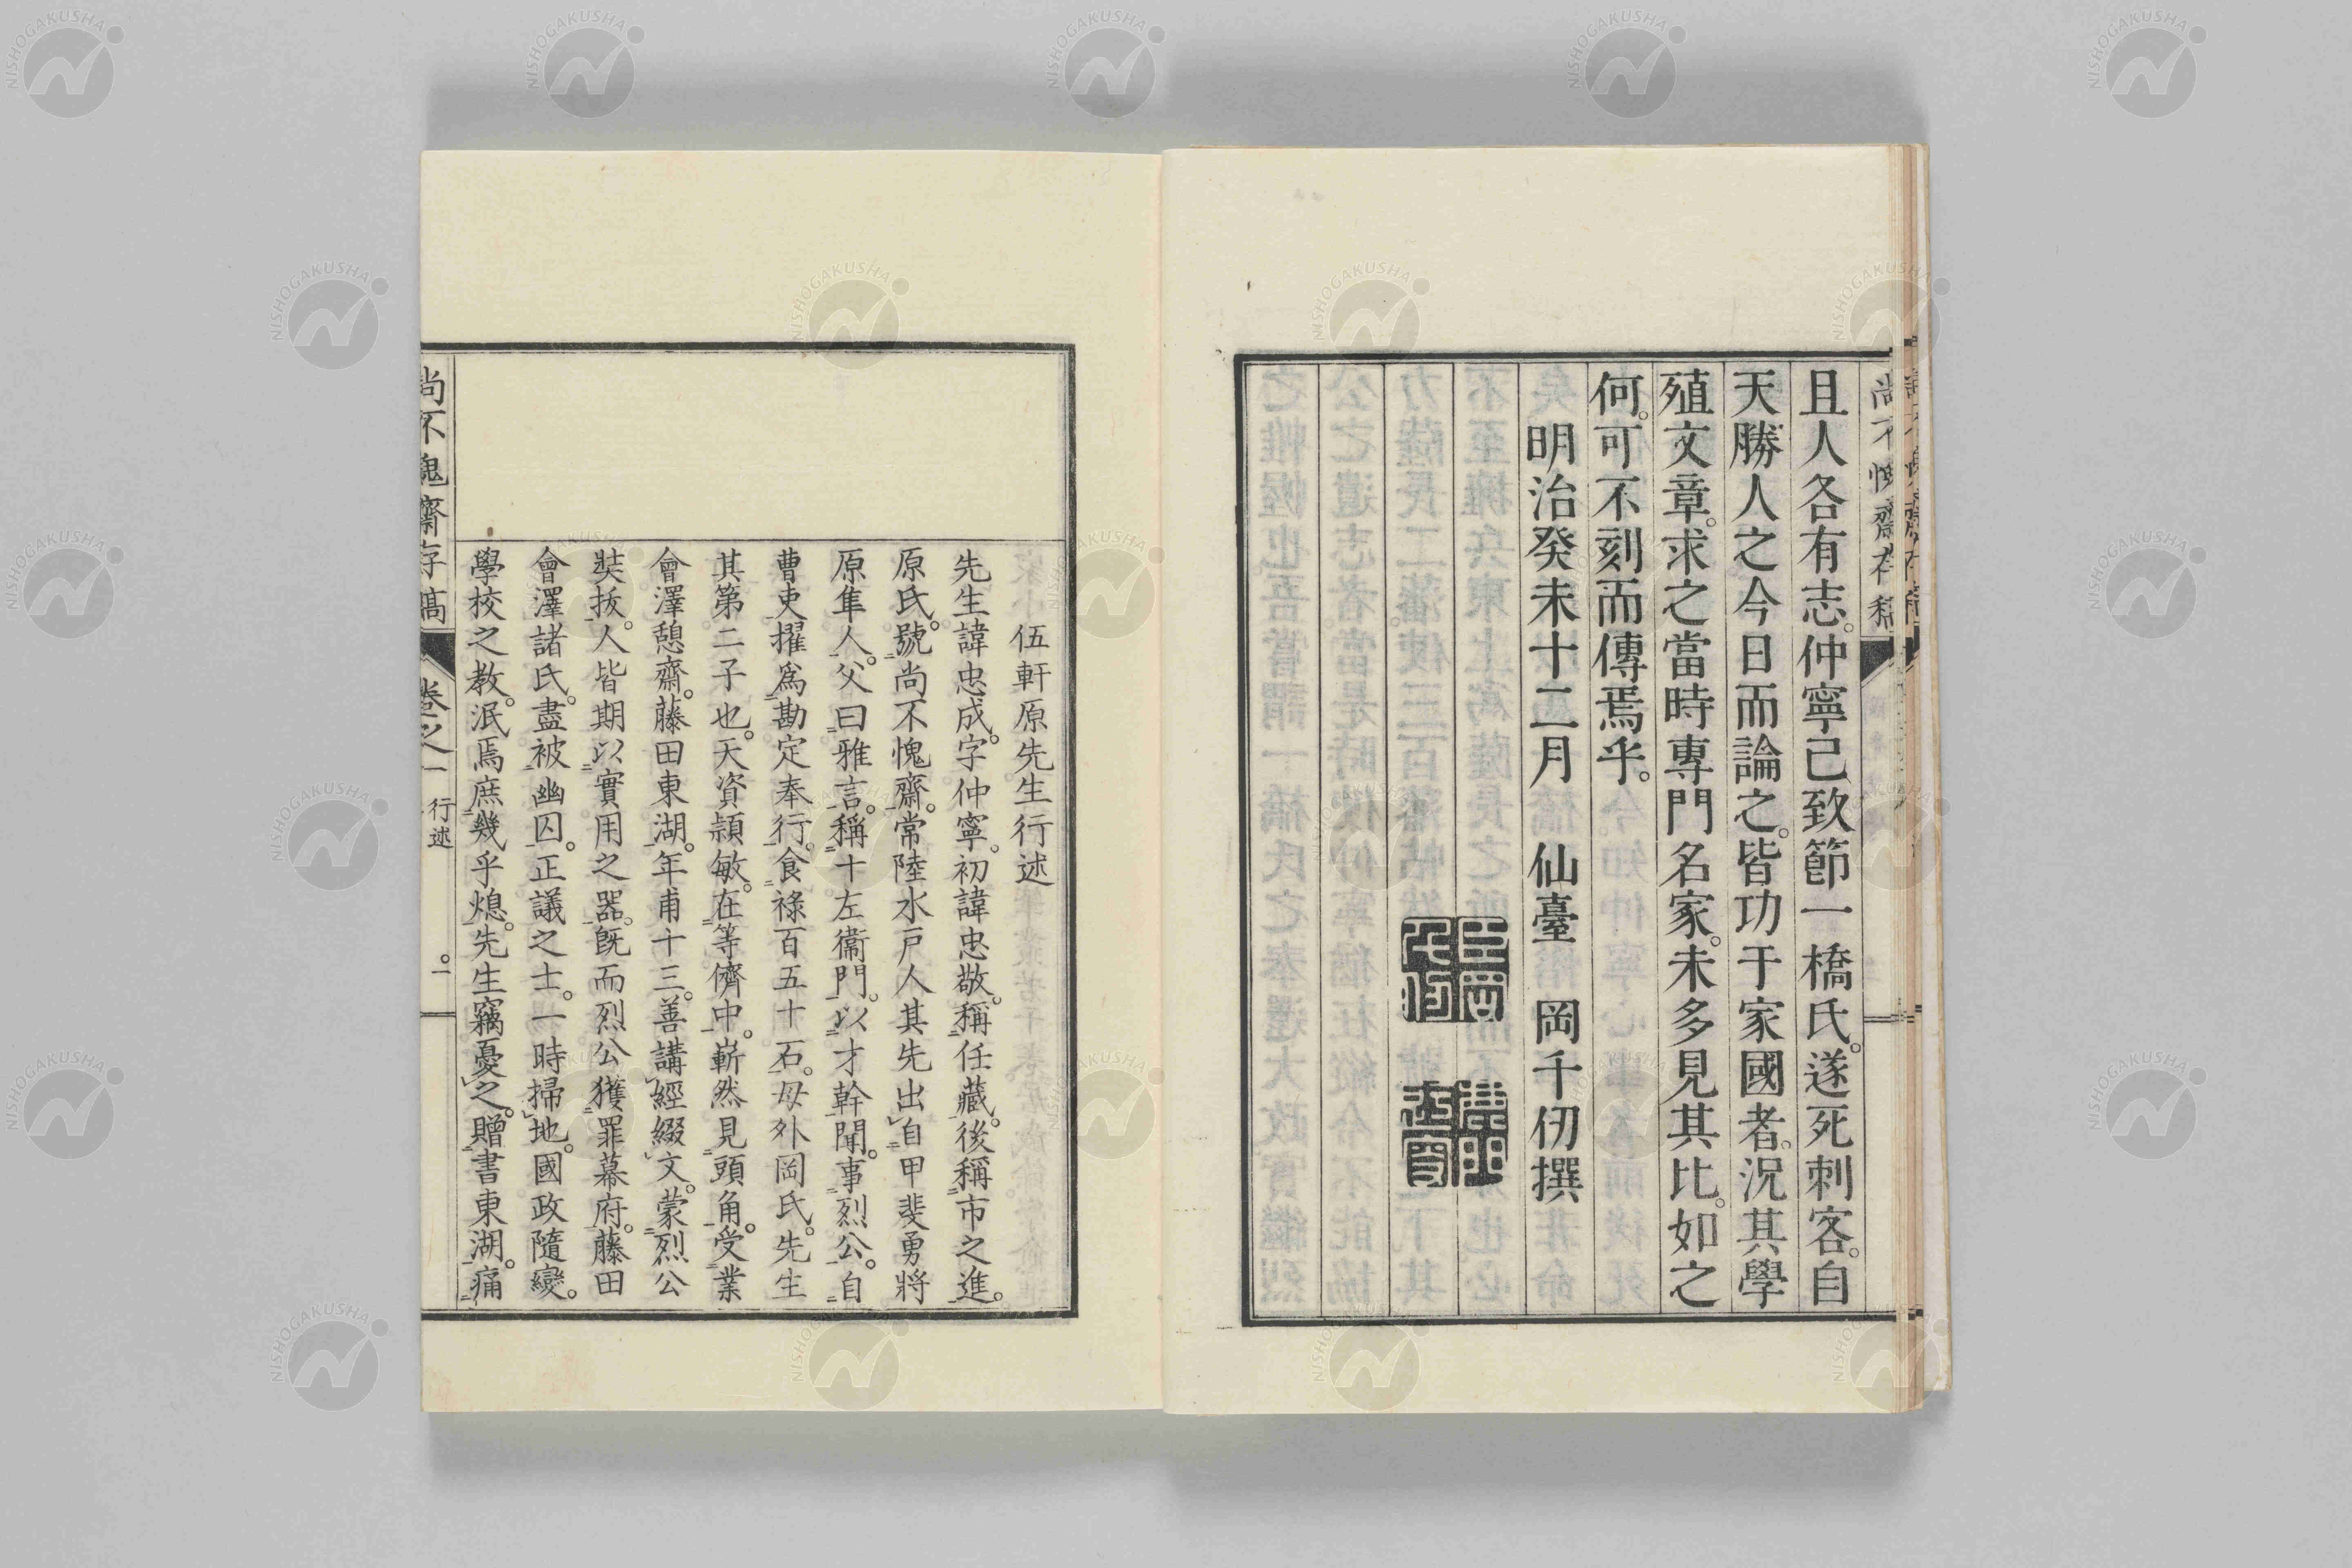 且人各有志。仲寧已致節一橋氏。遂死刺客。自
天勝人之今日而論之。皆功于家國者。況其學
殖文章。求之當時專門名家。未多見其比。如之
何。可不刻而傳焉乎。
明治癸未十二月　仙臺　岡千仞撰
伍軒原先生行述
先生諱忠成。字仲寧。初諱忠敬。稱任藏。後稱市之進。
原氏。號尚不愧齋。常陸水戸人其先出自甲斐勇將
原隼人。父曰雅言。稱十左衞門。以才幹聞。事烈公。自
曹吏擢爲勘定奉行。食祿百五十石。母外岡氏。先生
其第二子也。天資頴敏。在等儕中。嶄然見頭角。受業
會澤憩齋。藤田東湖。年甫十三。善講經綴文。蒙烈公
奘拔。人皆期以實用之器。既而烈公獲罪幕府。藤田
會澤諸氏。盡被幽囚。正議之士。一時掃地。國政隨變。
學校之教。泯焉庶幾乎熄。先生竊憂之。贈書東湖。痛
尚不愧齋存稿　卷之一　行述　一
NISHOGAKUSHA